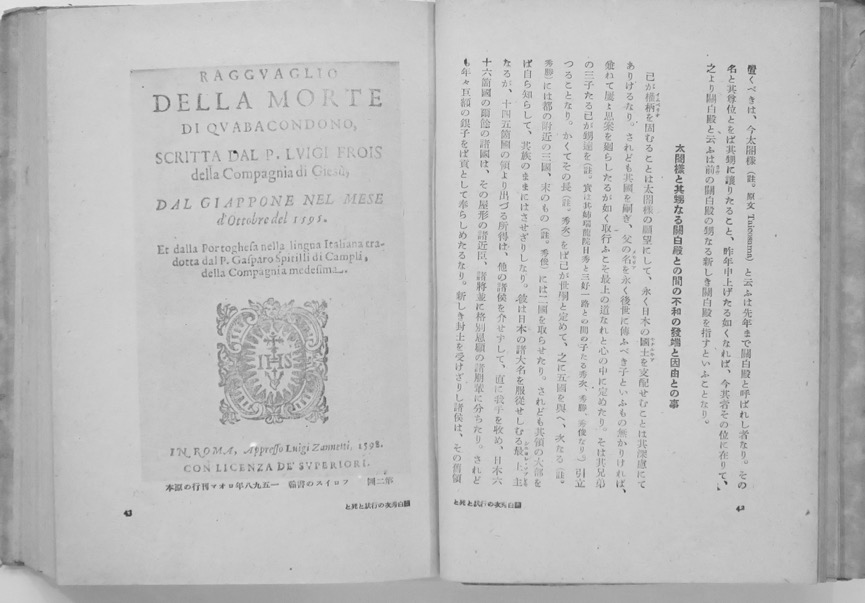 くべきは、今太閤樣(註。原文 Taicosama)と云ふは先年まで關白殿と呼ばれし者なり。その
名と其尊位とをば其甥に讓りたること、昨年申上げたる如くなれば、今其者その位に在りて、
之より關白殿と云ふは前の關白殿の甥なる新しき關白殿を指すといふことなり。
太閤樣と其甥なる關白殿との間の不和の發端と因由との事
己が權柄を固むることは太閤樣の願望にして、永く日本の國土を支配せむことは其深慮にて
ありけるなり。されども其國を嗣ぎ、父の名を永く後世に傳ふべき子といふもの無かりければ、
兼ねて屢よ思案を廻らしたるが如く取行ふこそ最上の道なれと心の中に定めたり。そは其兄弟
の三子たる己が甥達を(註。實は其姉瑞龍院日秀と三好一路との間の子たる秀次、秀勝、秀俊なり。)引立
つることなり。かくてその長(註。秀次)をば己が世嗣と定めて、之に五國を與へ、次なる(註。
秀勝)には都の附近の三國、末のもの(註。秀俊)には二國を取らせたり。されども其領の大部を
ば自ら知らして、其族のままにはさせざりしなり。彼は日本の諸大名を服從せしむる最上主
なるが、十四五箇國の領より出づる所得は、他の諸侯を介せずして、直に我手を收め、日本六
十六箇國の殘餘の諸國は、その屋形の諸近臣、諸將並に格別恩顧の諸朋輩に分ちたり。されど
も年々巨額の銀子をば貢として奉らしめたるなり。新しき封土を受けざりし諸侯は、その舊領
關白秀次の行狀と死と
42
RAGGVAGLIO
DELLA MORTE
DI QVABACONDONO,
SCRITTA DAL P. LVIGI FROIS
della Compagnia di Giesù,
DAL GIAPPONE NEL MESE
d'Ottobre del 1595.
Et dalla Portoghesa nella lingua Italiana tra-
dotta dal P. Gasparo Spitilli di Campli,
della Compagnia medesima.
IHS
IN ROMA, Appresso Luigi Zannetti, 1598.
CON LICENZA DE' SVPERIORI.
第二圖 フロイスの書翰 一五九八年ロオマ刊行の原本
關白秀次の行狀と死と
43